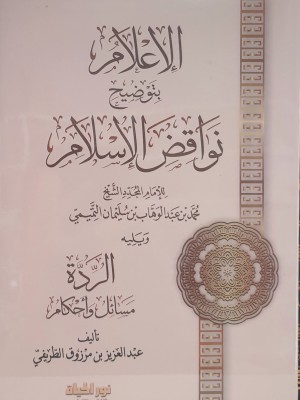 الإعلام
بتوضيح
نواقض الإسلام
للإمام المجدد الشيخ
محمد بن عبد الوهاب بن سليمان التميمي
ويليه
الردة
مسائل وأحكام
تأليف
عبد العزيز بن مرزوق الطريفي
نور الحياة